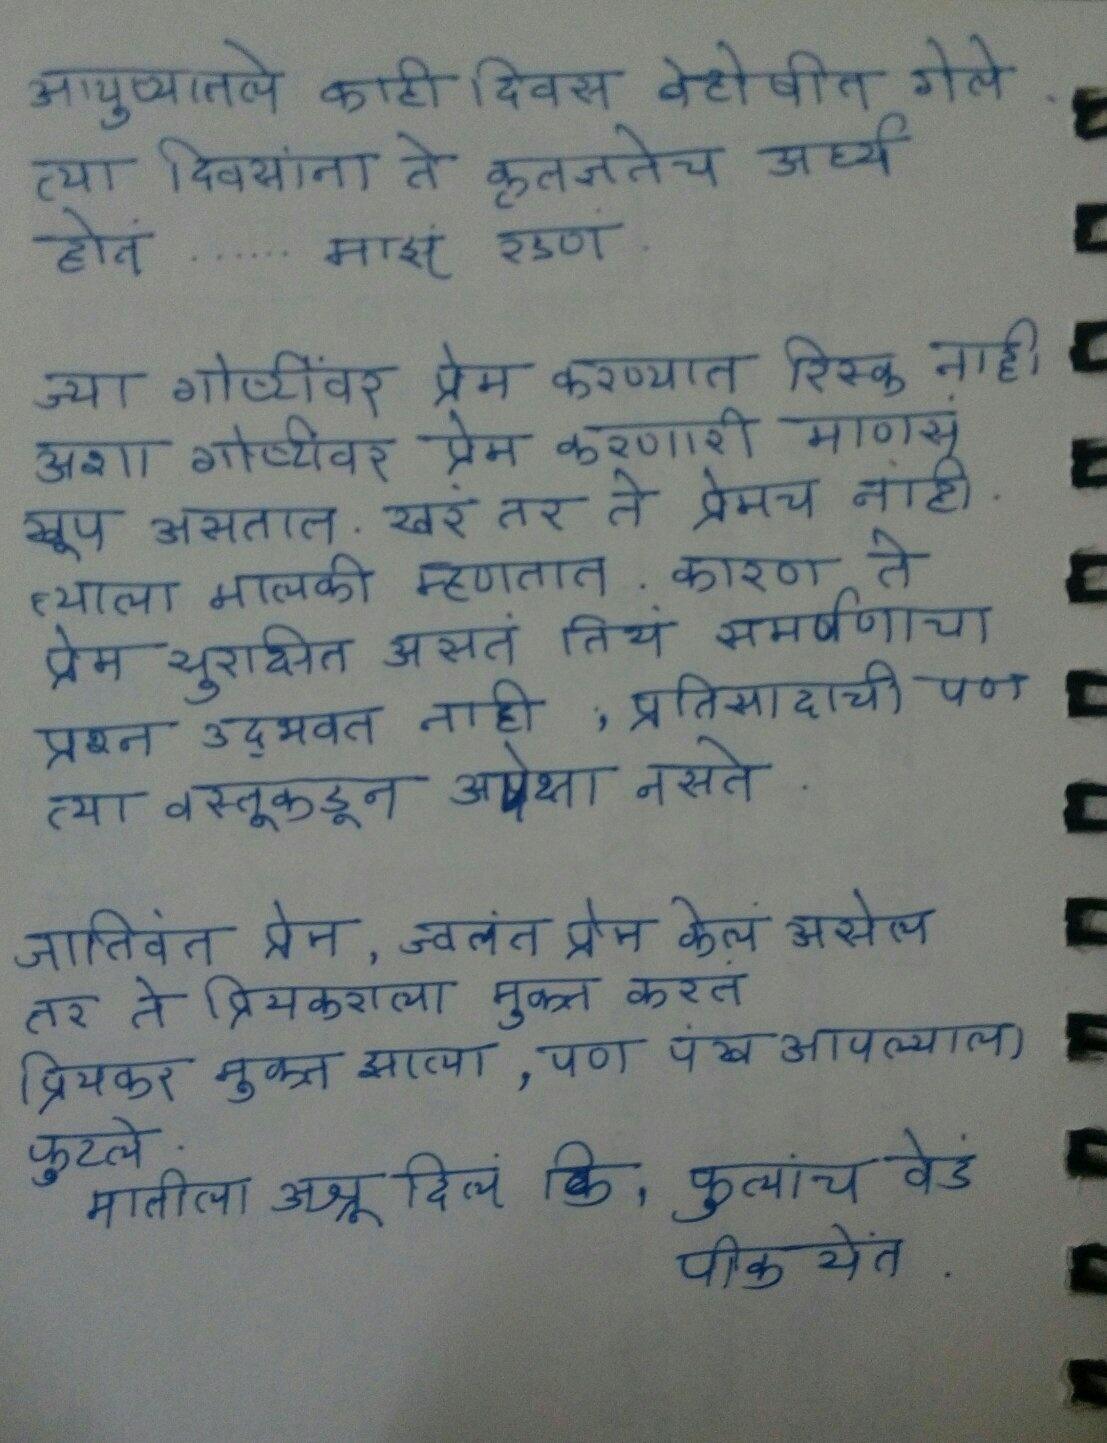 आयुष्यातले काही दिवस बेहोषीत गेले .
त्या दिवसांना ते कृतज्ञतेच अर्घ्य
होतं ...... माझं रडणं .
ज्या गोष्टींवर प्रेम करण्यात रिस्क नाही
अशा गोष्टींवर प्रेम करणारी माणसं
खूप असतात. खरं तर ते प्रेमच नाही .
त्याला मालकी म्हणतात . कारण ते
प्रेम सुरक्षित असतं तिथं समर्पणाचा
प्रश्न उद्भवत नाही , प्रतिसादाची पण
त्या वस्तूकडून अपेक्षा नसते .
जातिवंत प्रेम , ज्वलंत प्रेम केलं असेल
तर ते प्रियकराला मुक्त करतं
प्रियकर मुक्त झाला , पण पंख आपल्याला
फुटले .
मातीला अश्रू दिलं कि , फुलांच वेडं
पीक येतं .